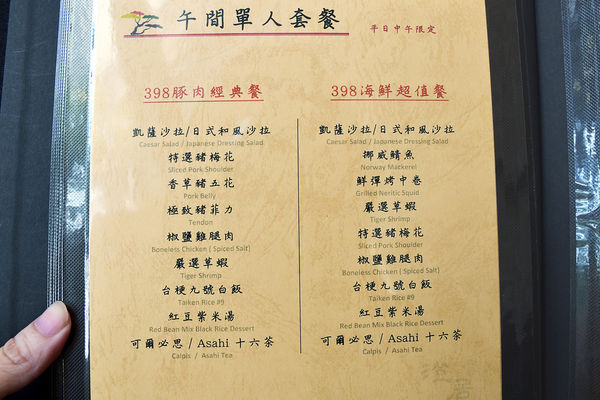 午間單人套餐
平日中午限定
398豚肉經典餐
凱薩沙拉/日式和風沙拉
Caesar Salad / Japanese Dressing Salad
特選豬梅花
Sliced Pork Shoulder
香草豬五花
Pork Belly
極致豬菲力
Tendon
椒鹽雞腿肉
Boneless Chicken ( Spiced Salt)
嚴選草蝦
Tiger Shrimp
台梗九號白飯
Taiken Rice #9
紅豆紫米湯
Red Bean Mix Black Rice Dessert
可爾必思 / Asahi 十六茶
Calpis / Asahi Tea
398海鮮超值餐
凱薩沙拉/日式和風沙拉
Caesar Salad / Japanese Dressing Salad
挪威鯖魚
Norway Mackerel
鮮彈烤中卷
Grilled Neritic Squid
嚴選草蝦
Tiger Shrimp
特選豬梅花
Sliced Pork Shoulder
椒鹽雞腿肉
Boneless Chicken ( Spiced Salt)
台梗九號白飯
Taiken Rice #9
紅豆紫米湯
Red Bean Mix Black Rice Dessert
可爾必思 / Asahi 十六茶
Calpis / Asahi Tea